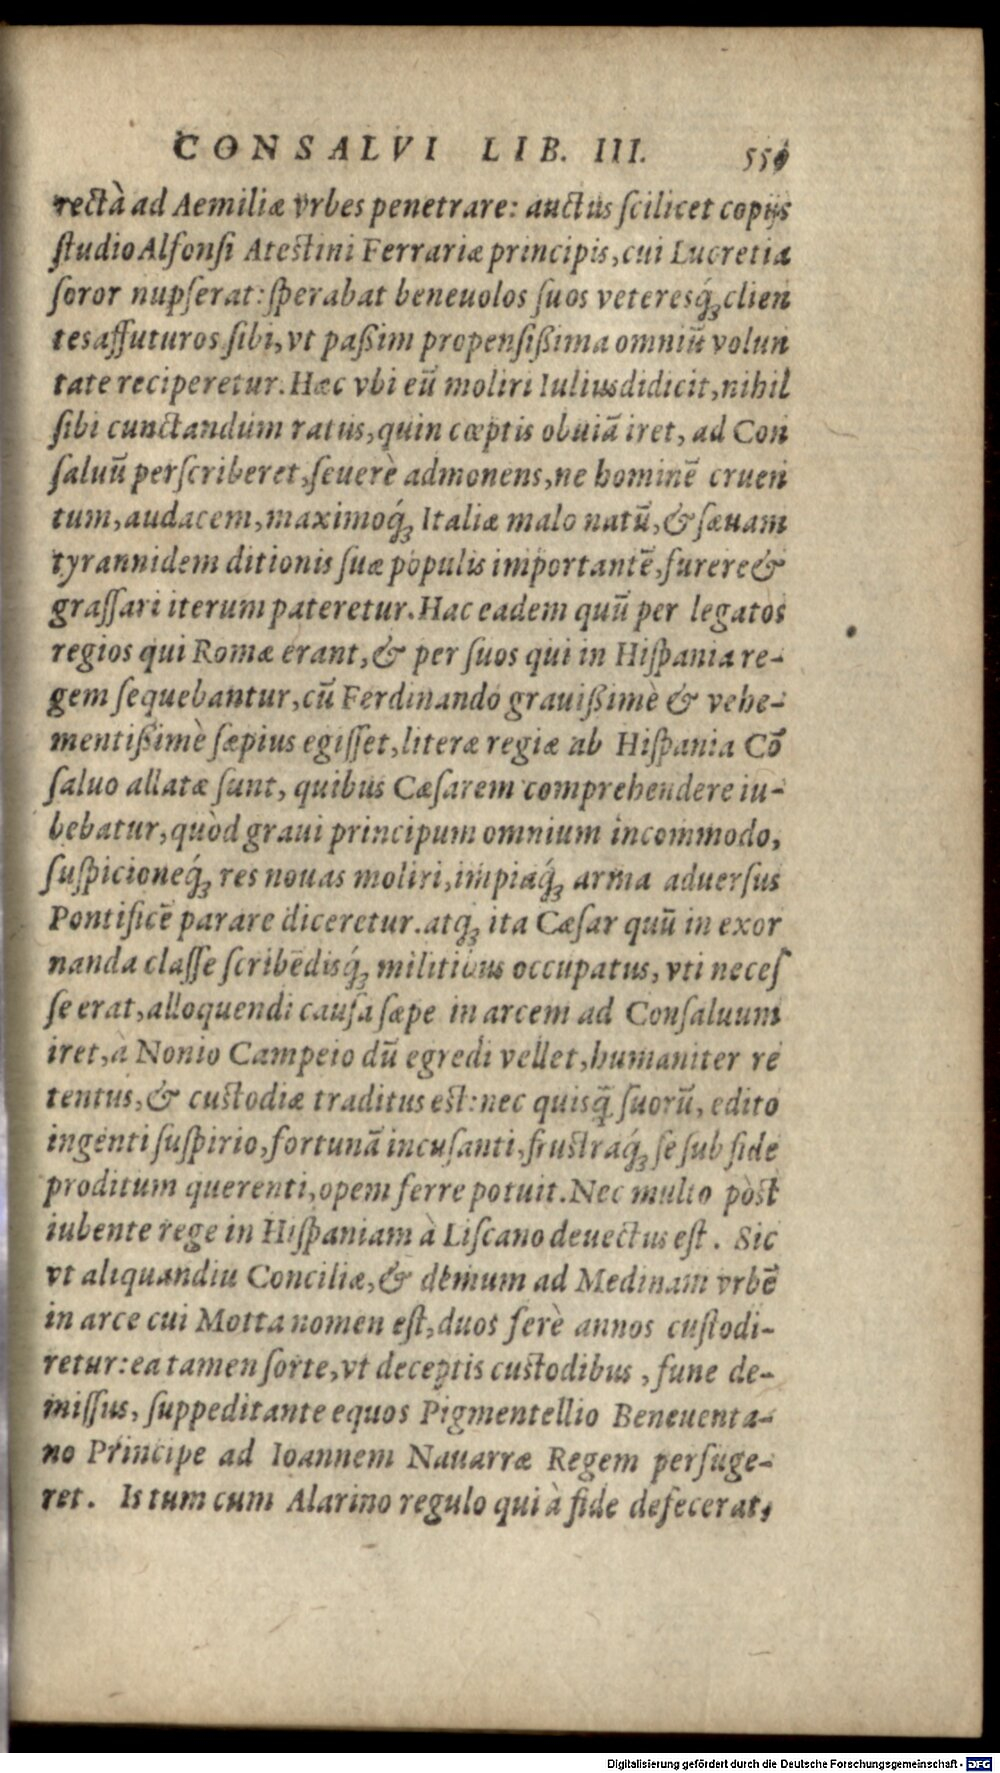 CONSALVI LIB. III. 559
rectà ad Aemiliæ vrbes penetrare: auctus ſcilicet copijs
ſtudio Alfonſi Ateſtini Ferrariæ principis, cui Lucretia
ſoror nupſerat: ſperabat beneuolos ſuos veteresq́ꝫ clien
tes affuturos ſibi, vt paßim propenſißima omniū volun
tate reciperetur. Hæc vbi eū moliri Iulius didicit, nihil
ſibi cunctandum ratus, quin cœptis obuiā iret, ad Con
ſaluū perſcriberet, ſeuerè admonens, ne hominē cruen
tum, audacem, maximoq́ꝫ Italiæ malo natū, & ſæuam
tyrannidem ditionis ſuæ populis importantē, furere &
graſſari iterum pateretur. Hac eadem quū per legatos
regios qui Romæ erant, & per ſuos qui in Hiſpania re-
gem ſequebantur, cū Ferdinando grauißimè & vehe-
mentißimè ſæpius egiſſet, literæ regiæ ab Hiſpania Cō
ſaluo allatæ ſunt, quibus Cæſarem comprehendere iu-
bebatur, quòd graui principum omnium incommodo,
ſuſpicioneq́ꝫ res nouas moliri, impiaq́ꝫ arma aduerſus
Pontificē parare diceretur. atqꝫ ita Cæſar quū in exor
nanda claſſe ſcribēdisq́ꝫ militibus occupatus, vti neceſ
ſe erat, alloquendi cauſa ſæpe in arcem ad Conſaluum
iret, à Nonio Campeio dū egredi vellet, humaniter re
tentus, & cuſtodiæ traditus eſt: nec quisq̄ ſuorū, edito
ingenti ſuſpirio, fortunā incuſanti, fruſtraq́ꝫ ſe ſub fide
proditum querenti, opem ferre potuit. Nec multo pòſt
iubente rege in Hiſpaniam à Liſcano deuectus eſt. Sic
vt aliquandiu Conciliæ, & demum ad Medinam vrbē
in arce cui Motta nomen eſt, duos ferè annos cuſtodi-
retur: ea tamen ſorte, vt deceptis cuſtodibus, fune de-
miſſus, ſuppeditante equos Pigmentellio Beneuenta-
no Principe ad Ioannem Nauarræ Regem perfuge-
ret. Is tum cum Alarino regulo qui à fide defecerat,
Digitalisierung gefördert durch die Deutsche Forschungsgemeinschaft - DFG